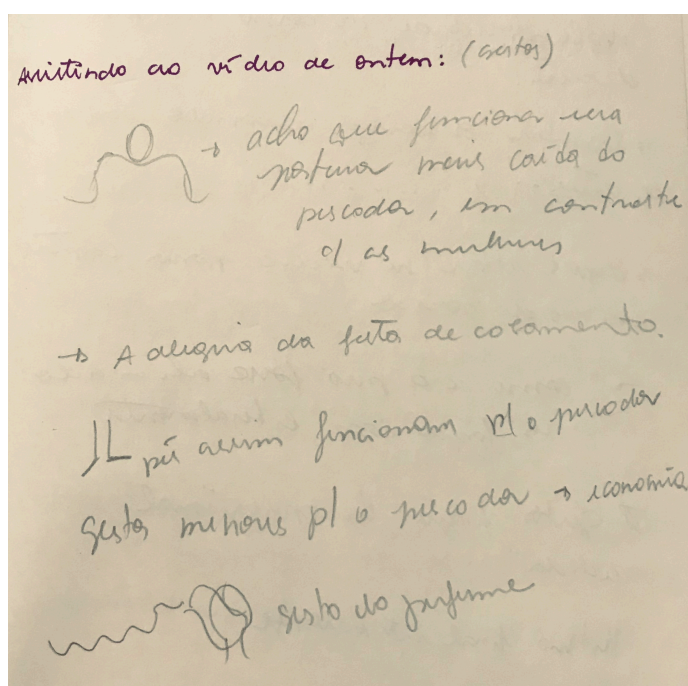 Assistindo ao vídeo de ontem: (gestos)
→ acho que funciona uma
postura mais caída do
pescador, em contraste
c/ as mulheres
→ A alegria da festa de casamento.
pé assim funcionam p/ o pescador
gestos menores p/ o pescador → economia
gesto do perfume